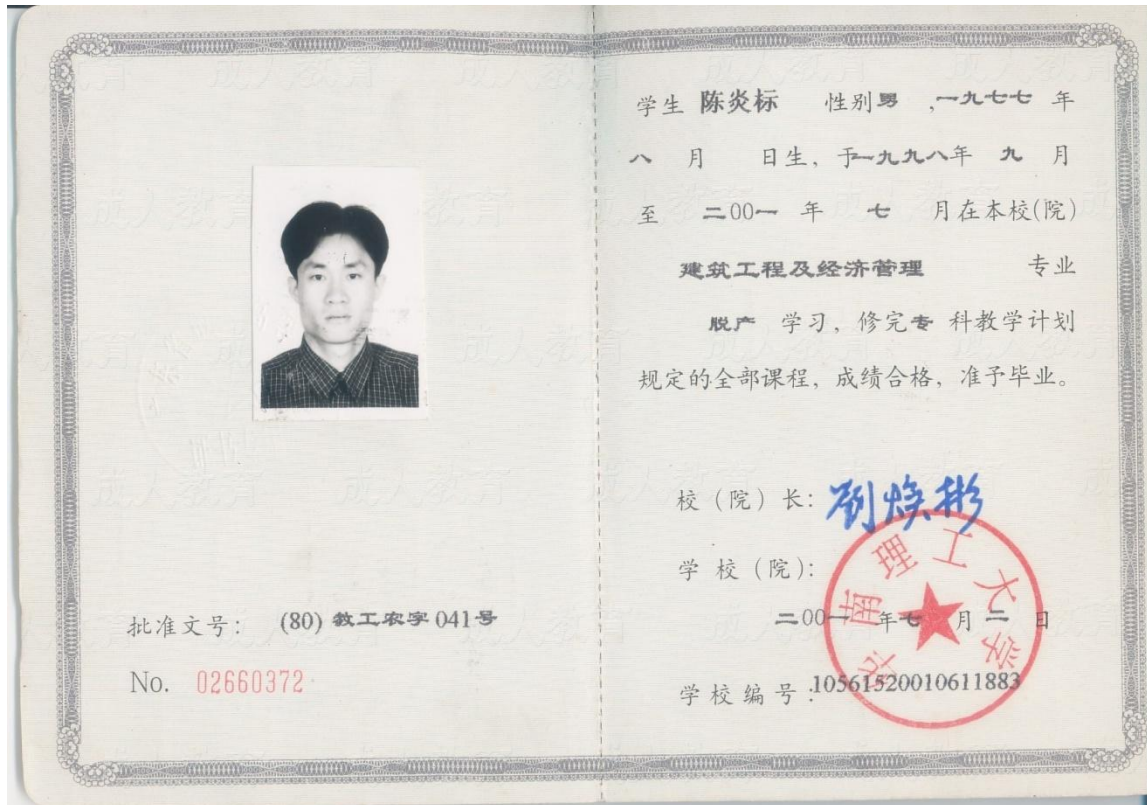 批准文号： (80) 教工农字 041号
No. 02660372
学生 陈炎标 性别男 ,一九七七 年
八 月 日生，于一九九八年 九 月
至 二00一 年 七 月在本校(院)
建筑工程及经济管理 专业
脱产 学习，修完专 科教学计划
规定的全部课程，成绩合格，准予毕业。
校（院）长：刘焕彬
学 校（院）：
华南理工大学
二00一年七月二日
学校编号：10561520010611883
成人教育